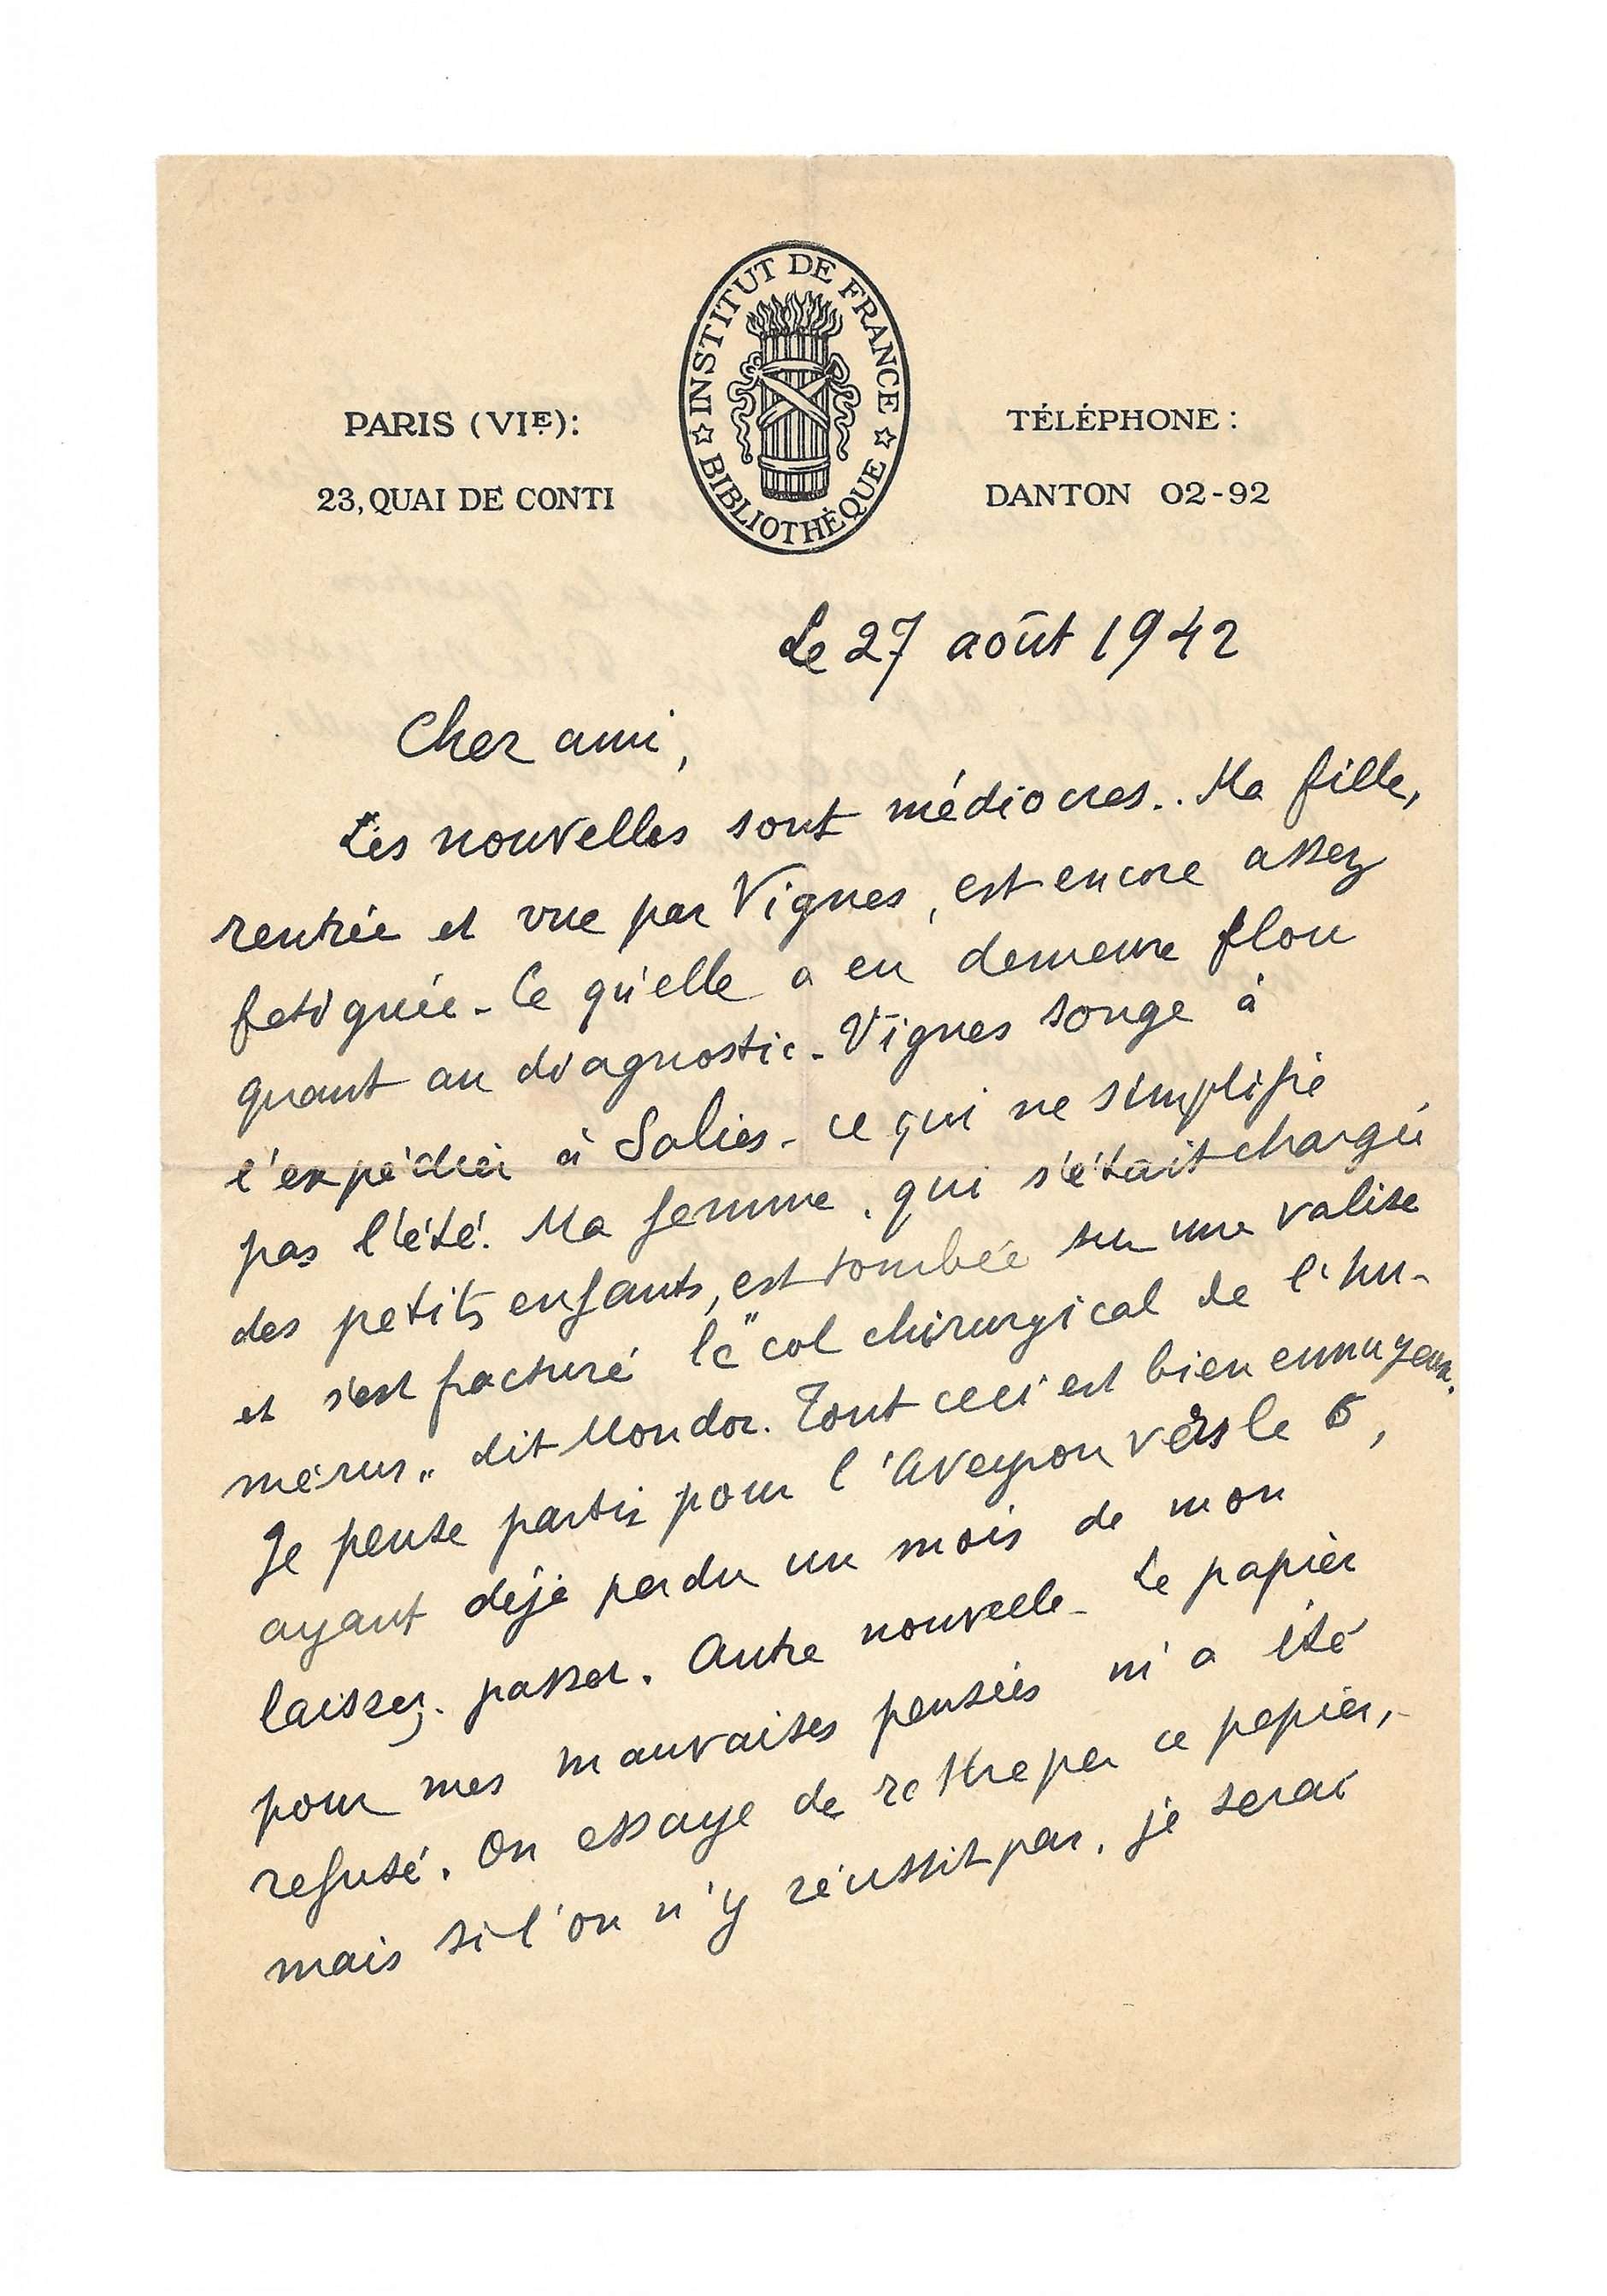 INSTITUT DE FRANCE
BIBLIOTHÈQUE
PARIS (VIE):
23, QUAI DE CONTI
TÉLÉPHONE :
DANTON 02-92
Le 27 août 1942
Cher ami,
Les nouvelles sont médiocres.. Ma fille,
rentrée et vue par Vignes, est encore assez
fatiguée - Ce qu'elle a eu demeure flou
quant au diagnostic - Vignes songe à
l'expédier à Salies - ce qui ne simplifie
pas l'été. Ma femme, qui s'était chargée
des petits enfants, est tombée sur une valise
et s'est fracturé le "col chirurgical de l'hu-
mérus" dit Mondor. Tout ceci est bien ennuyeux.
Je pense partir pour l'Aveyron vers le 6,
ayant déjà perdu un mois de mon
laissez-passer. Autre nouvelle - Le papier
pour mes mauvaises pensées m'a été
refusé. On essaye de rattraper ce papier,
mais si l'on n'y réussit pas, je serai